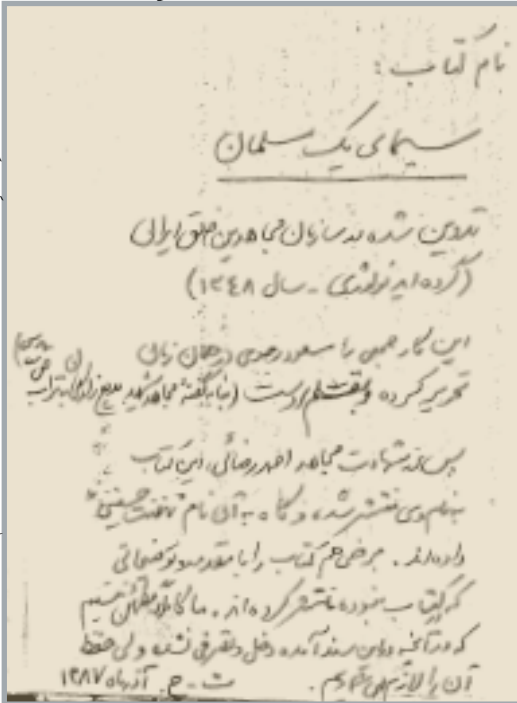 نام کتاب :
سیمای یک مسلمان
تدوین شده در سازمان مجاهدین خلق ایران
(گروه ایدئولوژی - سال ۱۳۴۸)
این کار جمعی را مسعود رجوی در همان زمان
تحریر کرده و بقلم اوست (بنا بگفتهٔ مجاهد شهید
پس از شهادت مجاهد احمد رضائی، این کتاب
بنام وی منتشر شد، و گاه به آن نام نهضت حسینی
داده‌اند. برخی هم کتاب را با مقدمه و توضیحاتی
که کتاب نبوده منتشر کرده‌اند. ما کاملاً مطمئن نیستیم
که در آنچه در این سند آمده دخل و تصرفی نشده ولی حفظ
آن را لازم می‌شمریم. ت - ح. آذرماه ۱۳۸۷